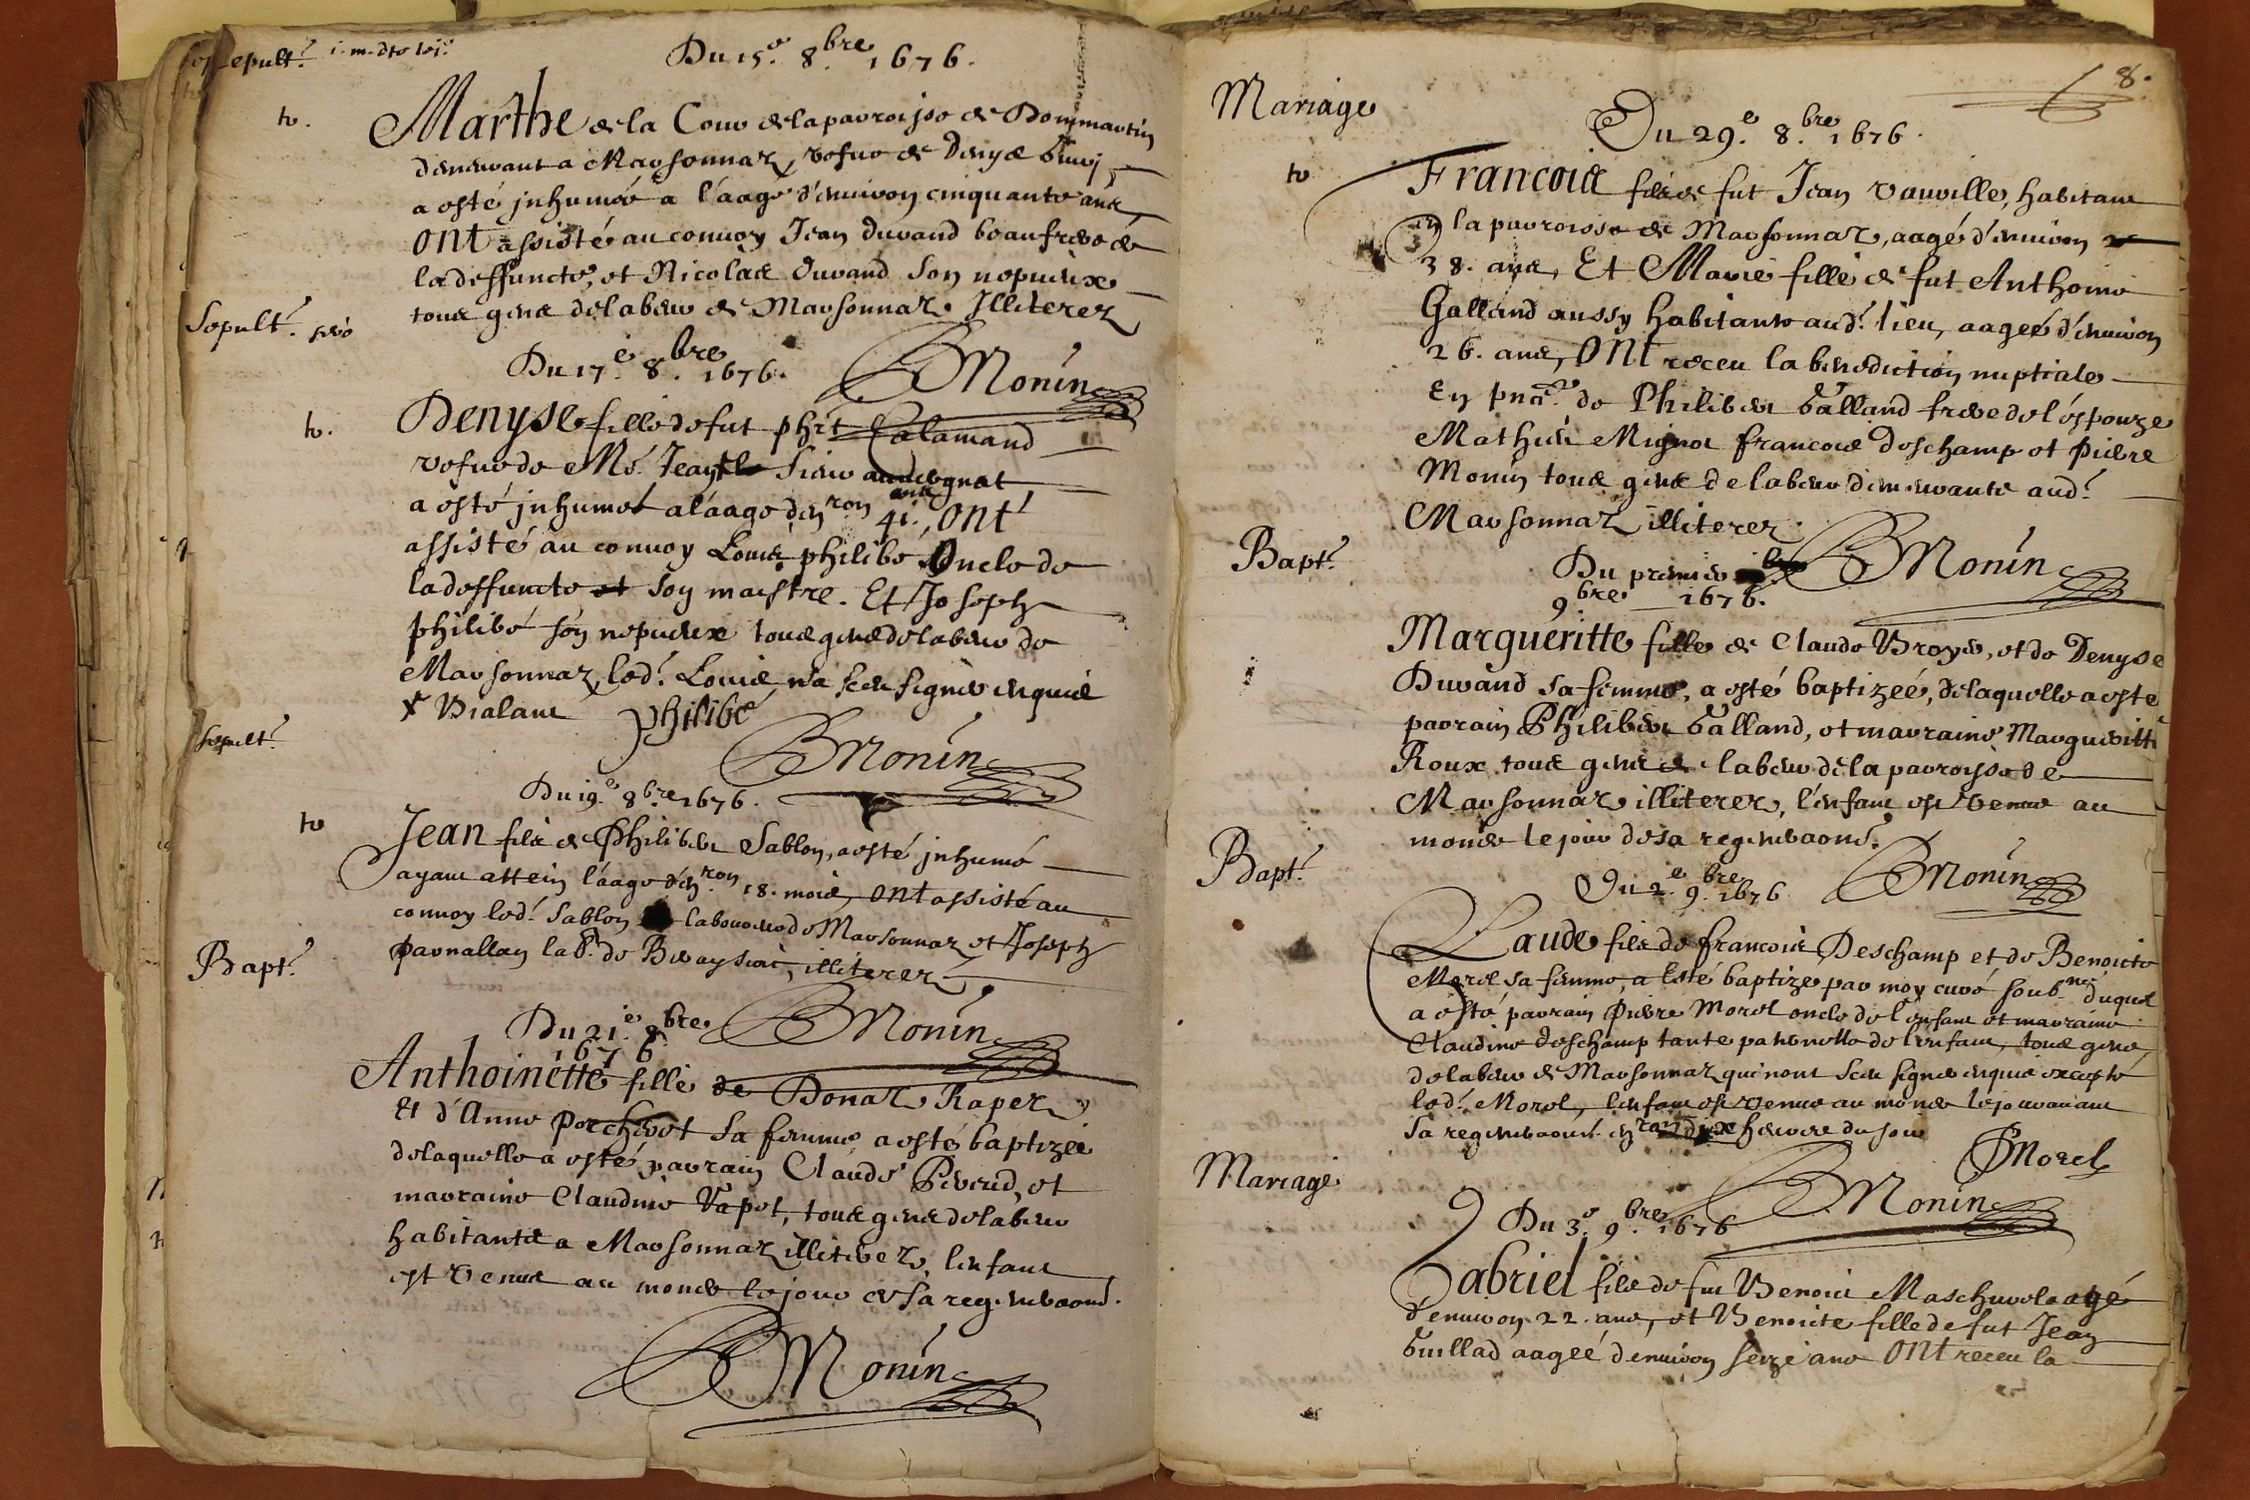 Sepult.
Du 15.e 8.bre 1676.
to.
Marthe de la Cour de la parroisse de Dommartin
demeurant a Marsonnaz, vefue de Denys
a esté inhumée a l'aage d'enuiron cinquante ans,
ONT assisté au conuoy Jean Durand beaufrere de
la deffuncte, et Nicolas Durand son nepueux
tous gens de labeur de Marsonnaz Illiterez
Monin
Sepult.
Du 17.e 8.bre 1676.
to.
Denyse fille de fut Phit
vefue de Me. Jean Sieur
a esté inhumée a l'aage d'enron 41. ans, ONT
assisté au conuoy Louis philibé Oncle de
la deffuncte et son maistre. Et Joseph
philibé son nepueux tous gens de labeur de
Marsonnaz, led. Louis n'a sceu signer enquis
x Vialant philibé
Monin
Sepult.
Du 19.e 8.bre 1676.
to
Jean fils de Philiber Sablon, a esté inhumé
ayant attein l'aage d'enron 18. mois, ONT assisté au
conuoy led. Sablon laboureur de Marsonnaz et Joseph
illiterez
Monin
Bapt.
Du 21.e 8.bre
1676
Anthoinette fille de Donaz Rapez
Et d'Anne sa femme a esté baptizée
de laquelle a esté parrain Claude et
marraine Claudine tous gens de labeur
habitants a Marsonnaz illiterez, l'enfant
est venue au monde le jour de sa regeneraon.
Monin
8.
Mariage
Du 29.e 8.bre 1676.
to
Francois fils de fut Jean Vauville, habitant
en la parroisse de Marsonnaz, aagé d'enuiron
38. ans, Et Marie fille de fut Anthoine
Galland aussy habitante aud. lieu, aagée d'enuiron
26. ans, ONT receu la benediction nuptiale
En pnce. de Philiber Galland frere de l'espouze
Mathieu Mignot francois Deschamp et Pierre
Monin tous gens de labeur demeurants aud.
Marsonnaz illiterez.
Monin
Bapt.
Du premier
9.bre 1676.
Margueritte fille de Claude Broyer, et de Denyse
Durand sa femme, a esté baptizeé, de laquelle a esté
parrain Philiber Galland, et marraine Margueritte
Roux tous gens de labeur de la parroisse de
Marsonnaz illiterez, l'enfant est venue au
monde le jour de sa regeneraon.
Monin
Bapt.
Du 2.e 9.bre 1676
Claude fils de francois Deschamp et de Benoicte
Morel sa femme, a Esté baptize par moy curé soubné duquel
a esté parrain Pierre Morel oncle de l'enfant et marraine
Claudine Deschamp tante paternelle de l'enfant, tous gens
de labeur de Marsonnaz qui n'ont sceu signer enquis excepté
led. Morel, l'enfant est venue au monde le jour auant
sa regeneraon. enron dix heures du soir
PMorel
Monin
Mariage
Du 3.e 9.bre 1676
Gabriel fils de fut Benoit aagé
d'enuiron 22. ans, et Benoicte fille de fut Jean
Guillad aageé d'enuiron seize ans ONT receu la